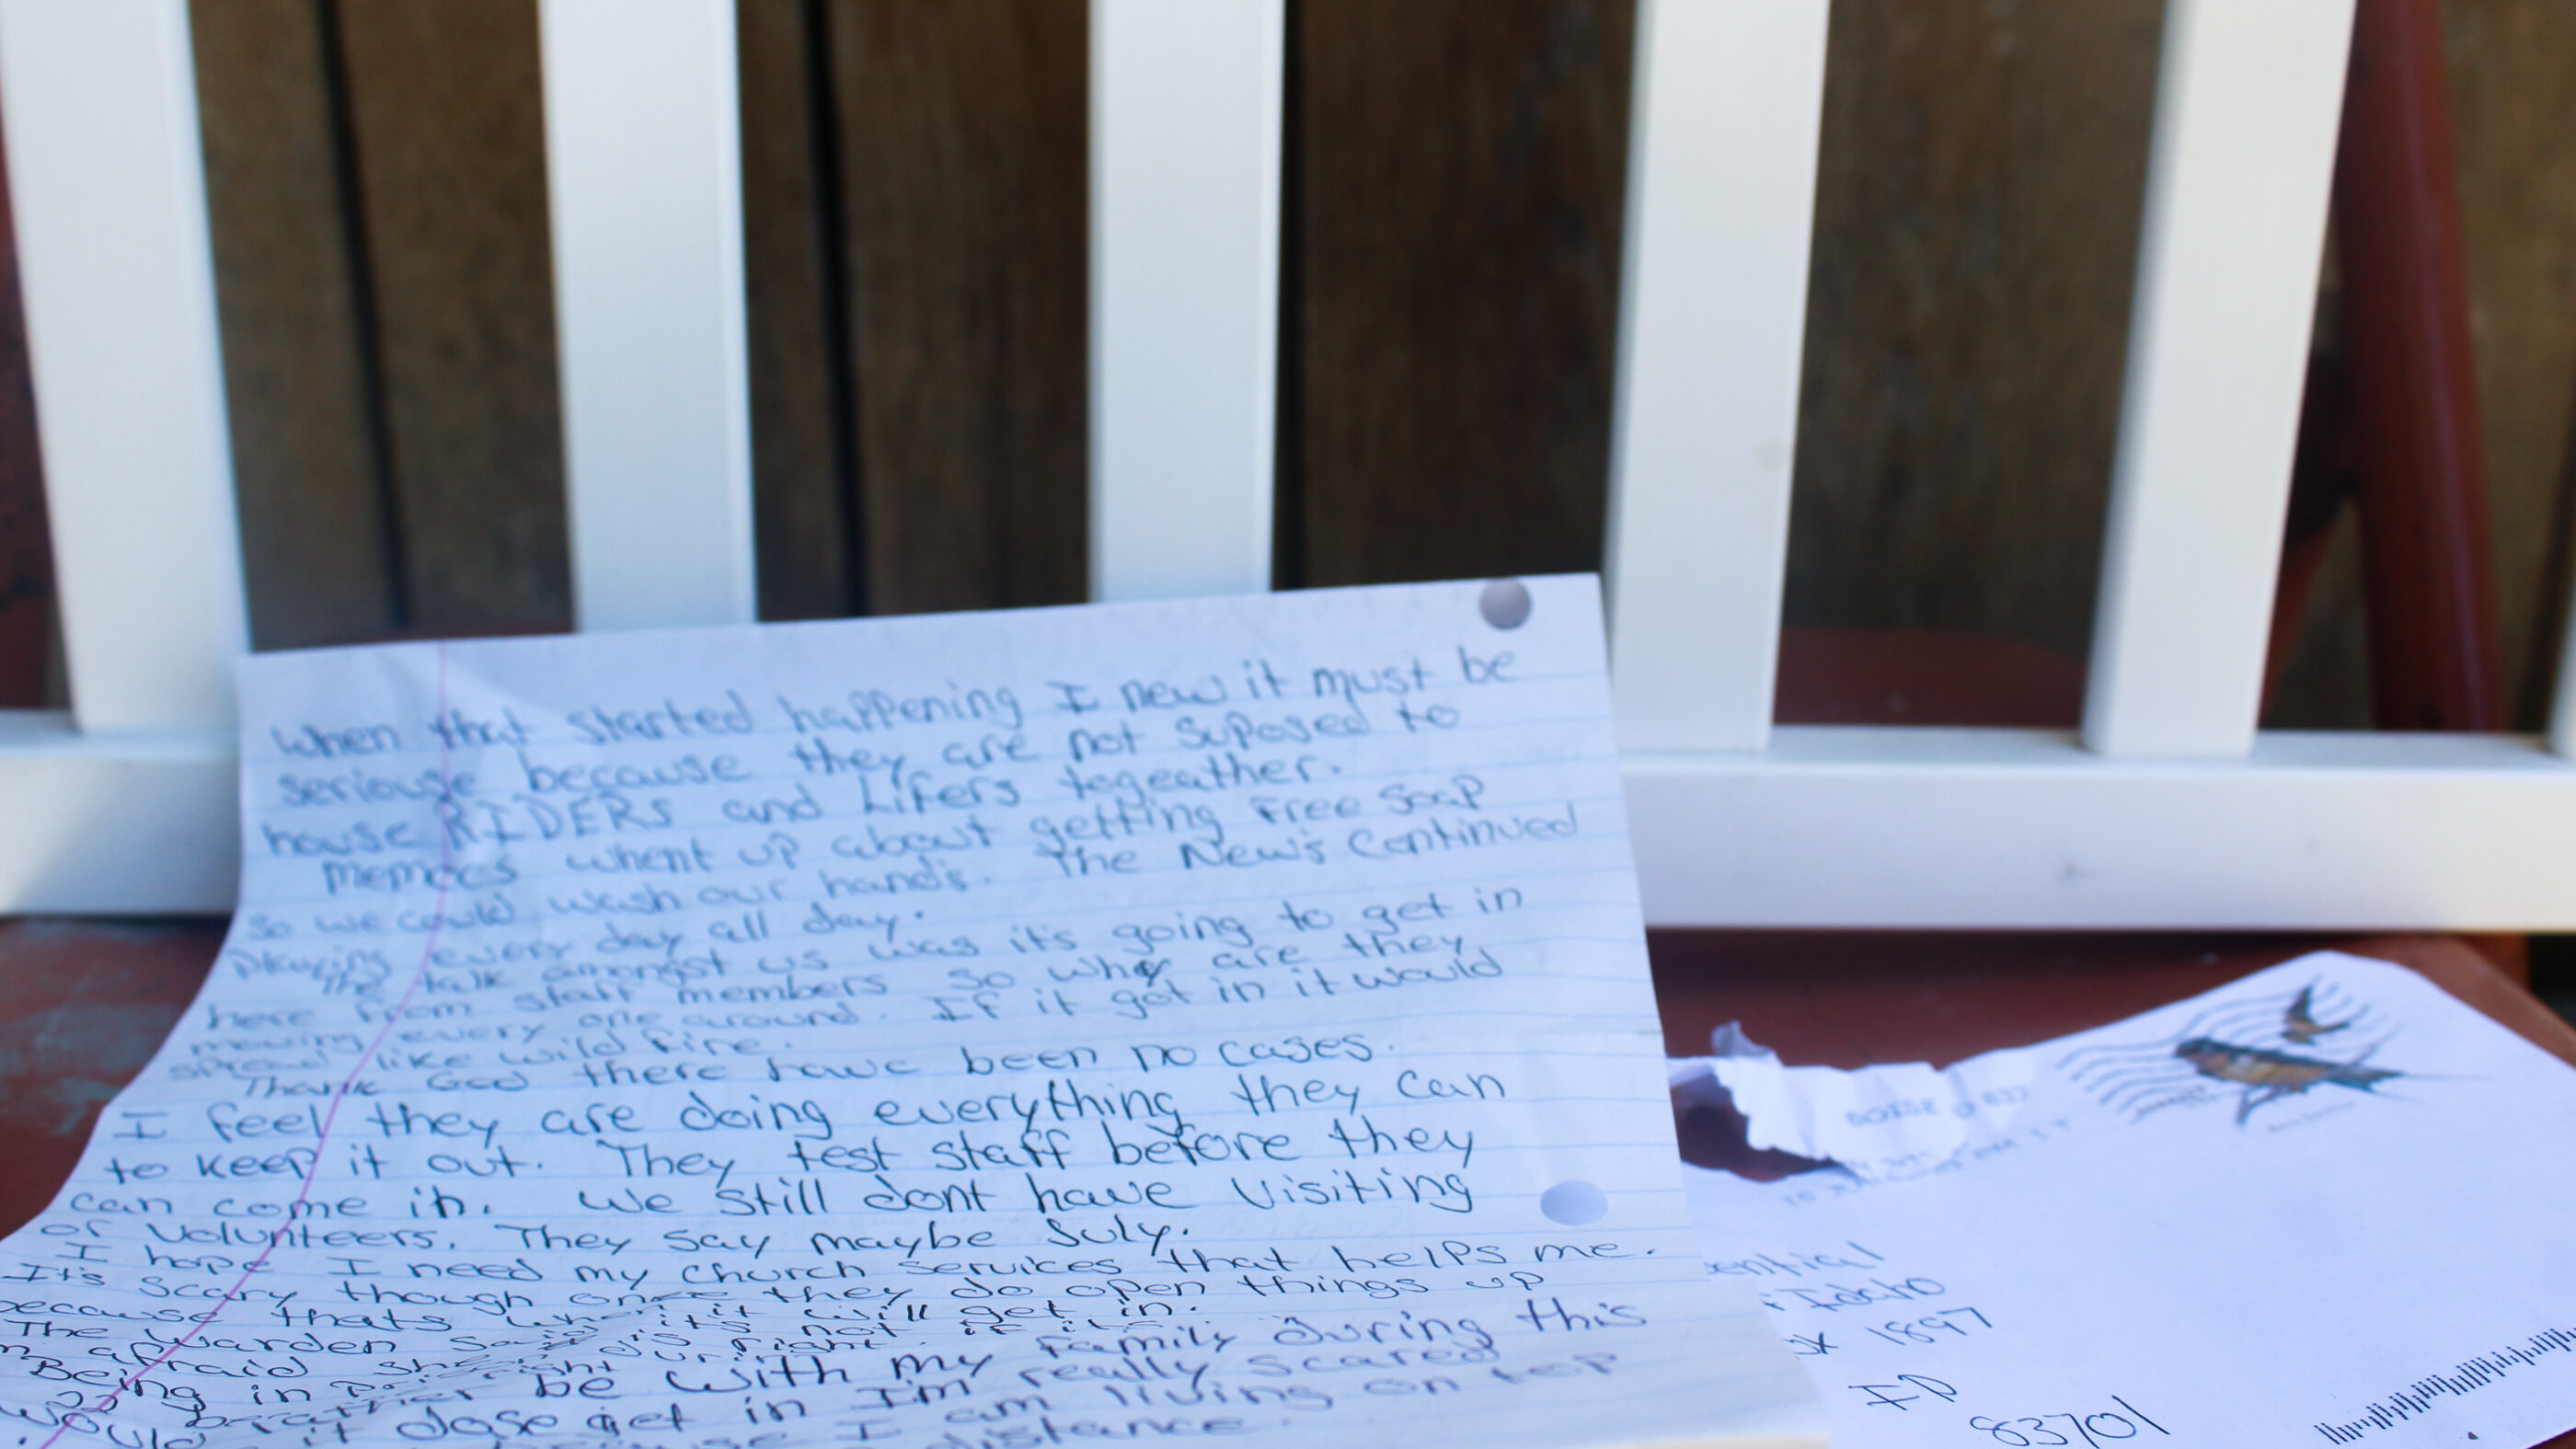 When that started happening I new it must be
seriouse because they are not suposed to
house RIDERs and Lifers togeather.
Memoes whent up about getting Free Soap
so we could wash our hands. The News Continued
playing every day all day.
The talk amongst us was it's going to get in
here from staff members so why are they
moving every one around. If it got in it would
spread like wild fire.
Thank God there have been no cases.
I feel they are doing everything they can
to keep it out. They test staff before they
can come in. We still dont have visiting
or volunteers. They say maybe July.
I hope I need my church services that helps me.
It's scary though once they do open things up
because thats when it will get in.
The Warden said it's not if it's
afraid she's right.
Being in be with my family during this
would it dose get in I'm really scared
I am living on top
distance.
BOISE ID 837
ential
Idaho
1897
ID
83701